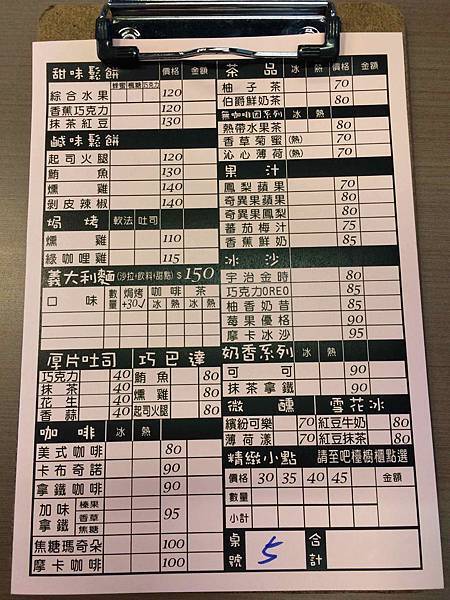 甜味鬆餅 蜂蜜 楓糖 巧克力 價格 金額
綜合水果 120
香蕉巧克力 120
抹茶紅豆 130
鹹味鬆餅
起司火腿 120
鮪魚 130
燻雞 140
剝皮辣椒 140
焗烤 軟法 吐司
燻雞 110
綠咖哩雞 115
義大利麵(沙拉+飲料+甜點) $150
口味 數量 焗烤+30✓ 咖啡 冰 熱 茶 冰 熱
厚片吐司 巧巴達
巧克力 40 鮪魚 80
抹茶 40
花生 40 燻雞 80
香蒜 40 起司火腿 80
咖啡 冰 熱
美式咖啡 80
卡布奇諾 90
拿鐵咖啡 90
加味拿鐵 榛果 香草 焦糖 95
焦糖瑪奇朵 100
摩卡咖啡 100
茶品 冰 熱 價格 金額
柚子茶 70
伯爵鮮奶茶 80
無咖啡因系列 冰 熱
熱帶水果茶 80
香草菊蜜(熱) 70
沁心薄荷(熱) 70
果汁
鳳梨蘋果 70
奇異果蘋果 80
奇異果鳳梨 80
蕃茄梅汁 75
香蕉鮮奶 85
冰沙
宇治金時 80
巧克力OREO 85
柚香奶昔 85
莓果優格 90
摩卡冰沙 95
奶香系列 冰 熱
可可 90
抹茶拿鐵 90
微醺 雪花冰
繽紛可樂 70 紅豆牛奶 80
薄荷漾 70 紅豆抹茶 80
精緻小點 請至吧檯櫥櫃點選
價格 30 35 40 45 金額
數量
小計
桌號 5 合計